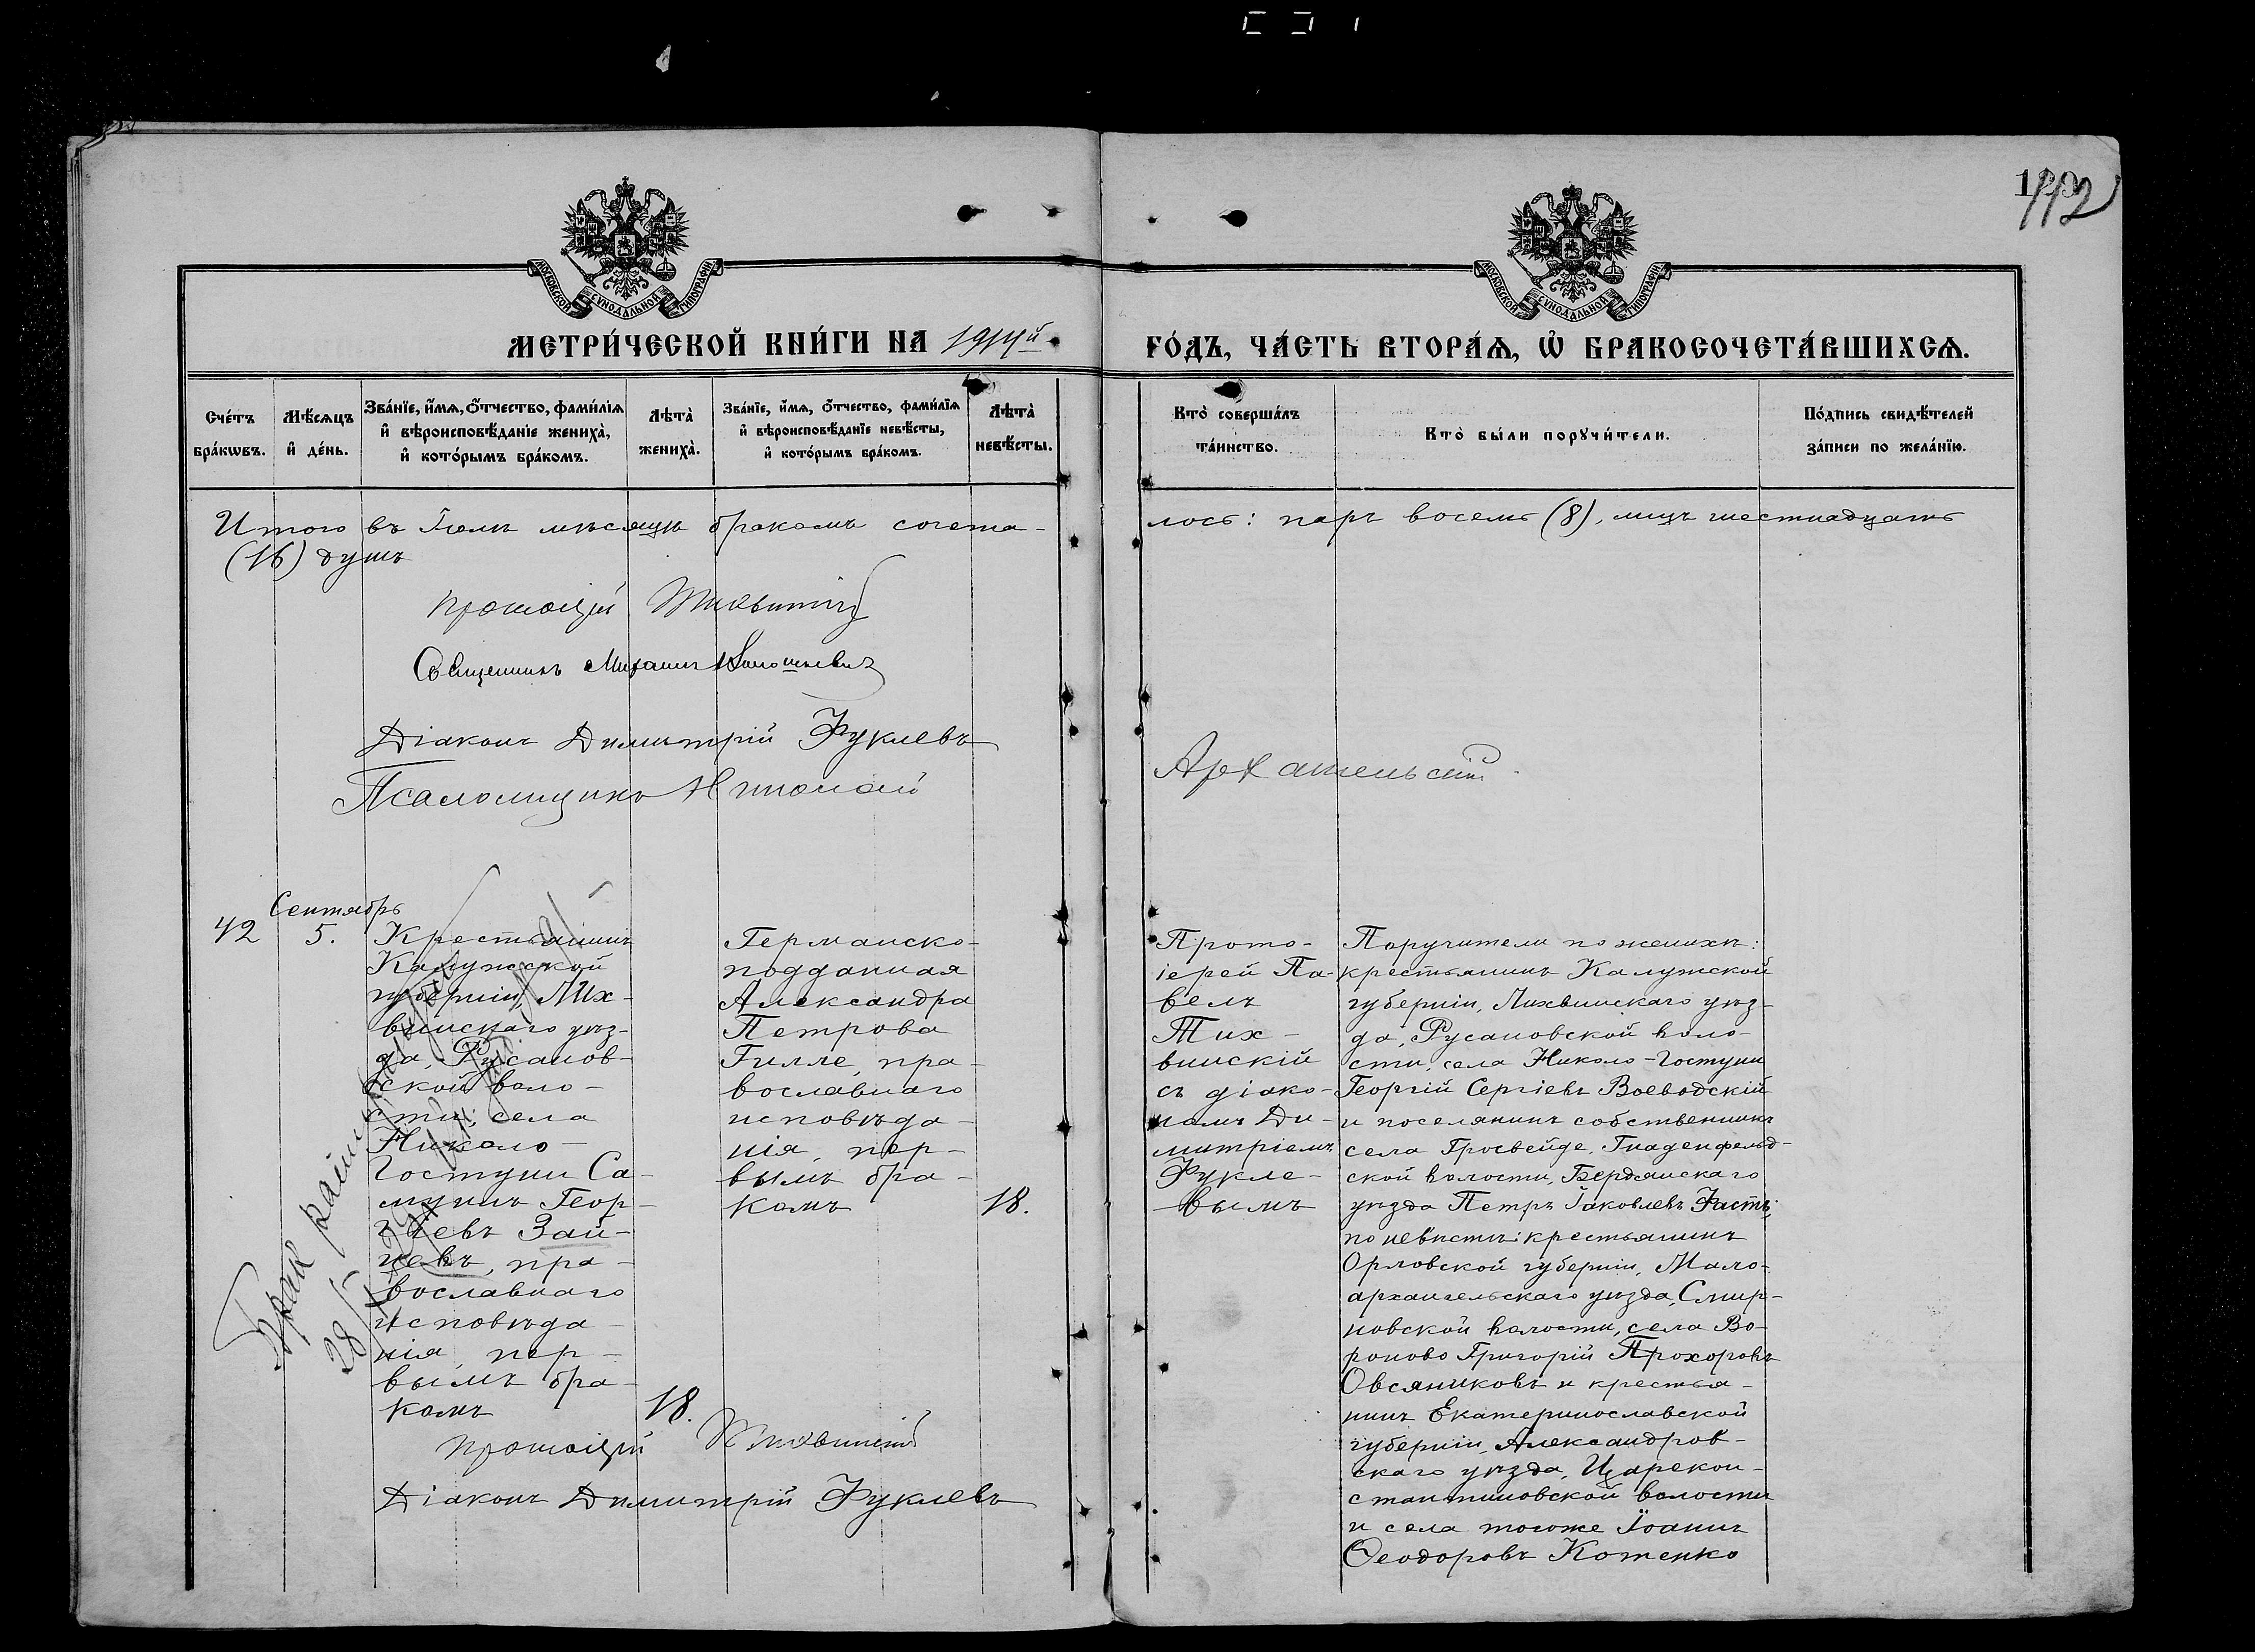 МОСКОВСКОЙ СУНОДАЛЬНОЙ ТИПОГРАФІИ
МОСКОВСКОЙ СУНОДАЛЬНОЙ ТИПОГРАФІИ
МЕТРИ́ЧЕСКОЙ КНИ́ГИ НА 1914й
ГО́ДЪ, ЧА́СТЬ ВТОРА́Ѧ, Ѡ҆ БРАКОСОЧЕТА́ВШИХСѦ.
Сче́тъ бра́кѡвъ.
Мѣ́сяцъ и҆ де́нь.
Зва́нїе, и҆́мѧ, ѻ҆́тчество, фами́лїѧ
и҆ вѣроисповѣ́данїе жениха̀,
и҆ кото́рымъ бра́комъ.
Лѣта̀ жениха̀.
Зва́нїе, и҆́мѧ, ѻ҆́тчество, фами́лїѧ
и҆ вѣроисповѣ́данїе невѣ́сты,
и҆ кото́рымъ бра́комъ.
Лѣта̀ невѣ́сты.
Кто̀ соверша́лъ та́инство.
Кто̀ бы́ли порꙋчи́тели.
По́дпись свидѣ́телей за́писи по жела́нїю.
Итого въ Іюлѣ мѣсяцѣ бракомъ сочета-
лось: паръ восемь (8), лицъ шестнадцать
(16) душъ
Священникъ Михаилъ
Діаконъ Димитрій Фуклевъ
Псаломщикъ Николай
Архангельскій
Сентябрь
42
5.
Крестьянинъ
Калужской
губерніи, Лих-
винскаго уѣз-
да, Русанов-
ской воло-
сти, села
Николо-
Гостуни Са-
муилъ Геор-
гіевъ Зай-
цевъ, пра-
вославнаго
исповѣда-
нія, пер-
вымъ бра-
комъ
18.
Германско-
подданная
Александра
Петрова
Гилле, пра-
вославнаго
исповѣда-
нія, пер-
вымъ бра-
комъ
18.
Прото-
іерей Па-
велъ
Тих-
винскій
съ діако-
номъ Ди-
митріемъ
Фукле-
вымъ
Поручители по женихѣ:
крестьянинъ Калужской
губерніи, Лихвинскаго уѣз-
да, Русановской воло-
сти, села Николо-Гостуни
Георгій Сергіевъ Воеводскій
и поселянинъ собственникъ
села Гросвейде, Гнаденфельд-
ской волости, Бердянскаго
уѣзда Петръ Іаковлевъ Фастъ;
по невѣстѣ: крестьянинъ
Орловской губерніи, Мало-
архангельскаго уѣзда, Смир-
новской волости, села Во-
роново Григорій Прохоровъ
Овсяниковъ и крестья-
нинъ Екатеринославской
губерніи, Александров-
скаго уѣзда, Царекон-
стантиновской волости
и села тогоже Іоаннъ
Ѳеодоровъ Котенко
Брак
28/
Тихвинскій
Діаконъ Димитрій Фуклевъ